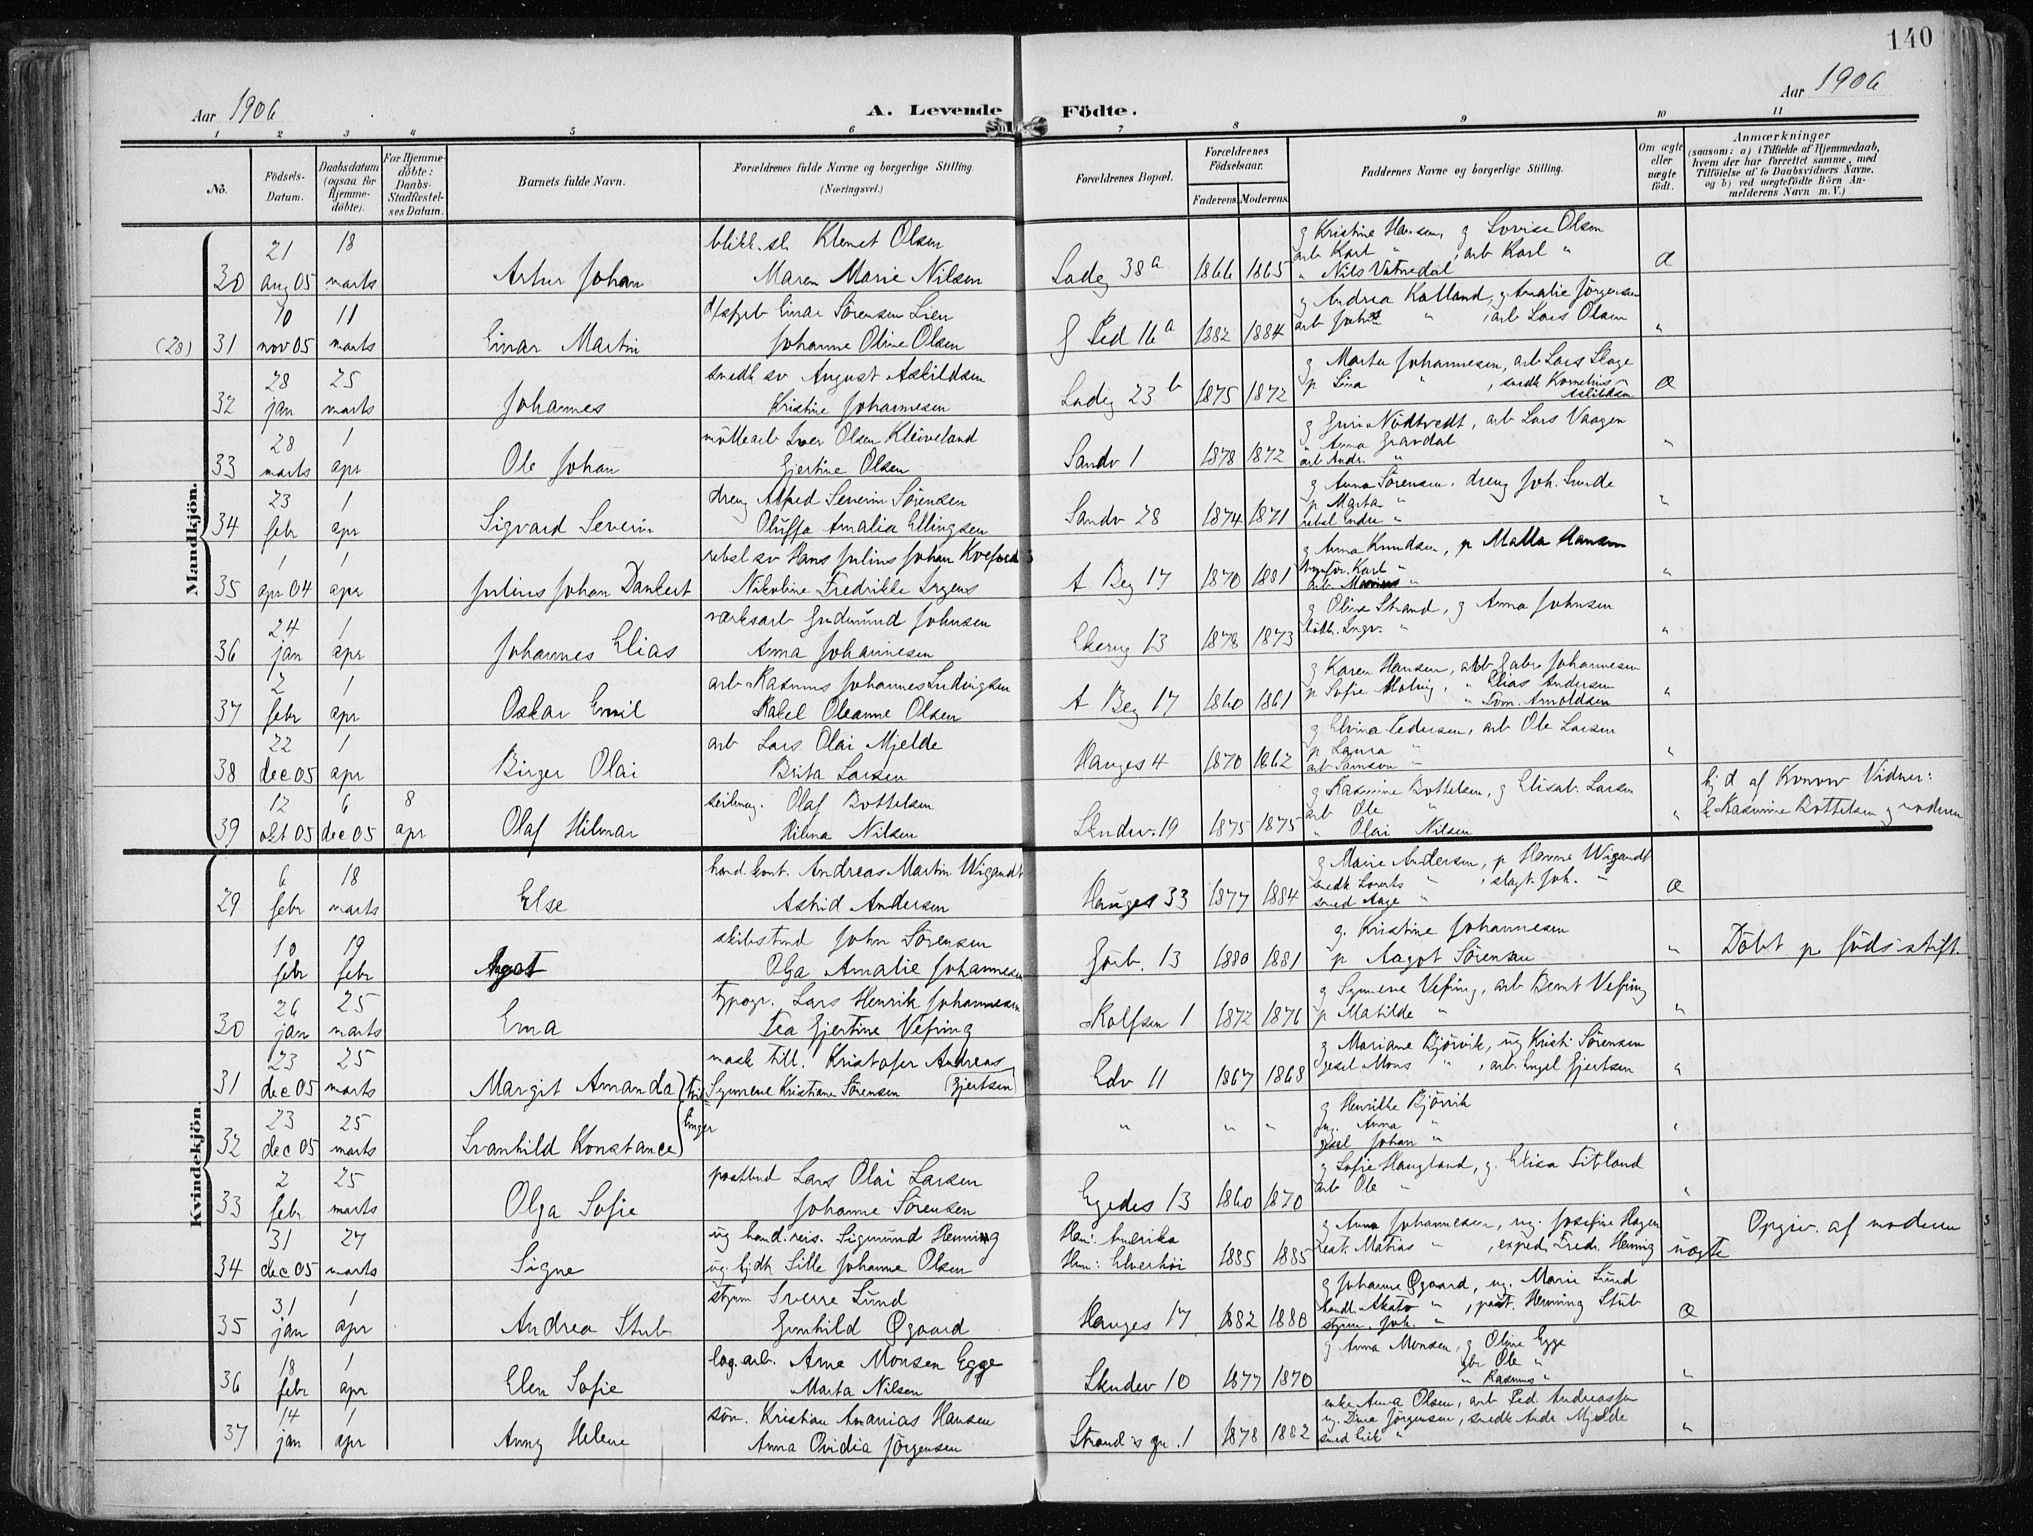 140
Aar 1906
A. Levende Födte.
Aar 1906
1 2 3 4 5 6 7 8 9 10 11
No.
Födsels-Datum.
Daabsdatum (ogsaa for Hjemmedöbte).
For Hjemmedöbte: Daabs-Stadfæstelses Datum.
Barnets fulde Navn.
Forældrenes fulde Navne og borgerlige Stilling. (Næringsvei.)
Forældrenes Bopæl.
Forældrenes Födselsaar.
Faderens. Moderens.
Faddernes Navne og borgerlige Stilling.
Om ægte eller uægte födt.
Anmærkninger
(saasom: a) i Tilfælde af Hjemmedaab, hvem der har forrettet samme, med Tilföielse af to Daabsvidners Navne, og b) ved uægtefödte Börn Anmelderens Navn m. V.)
Mandkjön.
blikk.sl. Klemet Olsen g Kristine Hansen, g Lovise Olsen
21 18 arb Karl " , arb Karl "
30 aug 05 marts Artur Johan Maren Marie Nilsen Ladeg 38a 1866 1865 " Nils Vatnedal æ
10 11 Einar Sörensen Lien g Andrea Kalland, g Amalie Jörgensen
(28) 31 nov 05 marts Einar Martin Johanne Oline Olsen Ped 16a 1882 1884 arb " , arb Lars Olsen "
28 25 snedk sv August Askildsen g Marta Johannesen, arb Lars Skage
32 jan marts Johannes Kristine Johannesen Ladeg 23b 1875 1872 p Lina " , snedk Kornelius Askildsen æ
28 1 möllearb Iver Olsen Kleiveland g Guri Nödtvedt, arb Lars Vaagen
33 marts apr Ole Johan Gjertine Olsen Sandv 1 1878 1872 " Anna Gravdal
arb Andr. " "
23 1 dreng Alfred Severin Sörensen g Anna Sörensen, dreng Joh. Lunde
34 febr apr Sigvard Severin Oluffa Amalia Ellingsen Sandv 28 1874 1871 p Marta " "
1 1 rebsl sv Hans Julius Johan g Anna Knudsen, p Malla Hansen
35 apr 04 apr Julius Johan Dankert Nikoline Fredrikke Irgens A Beg 17 1870 1881 Karl " "
24 1 værksarb Gudmund Johnsen g Oline Strand, g Anna Johnsen
36 jan apr Johannes Elias Anna Johannesen Ekerug 13 1878 1873 Ingv. " "
2 1 arb Rasmus Johannes Ludvigsen g Karen Hansen, arb Gabr Johannesen
37 febr apr Oskar Emil Rakel Oleanne Olsen A Beg 17 1860 1861 p Sofie , " Elias Andersen
" Tom. Arnoldsen "
22 1 arb Lars Olai Mjelde g Elvina Pedersen, arb Ole Larsen
38 dec 05 apr Birger Olai Brita Larsen Hauges 4 1870 1862 p Laura "
arb Samson " "
12 6 8 Olaf Bottelsen g Rasmine Bottelsen, g Elisab. Larsen
39 okt 05 dec 05 apr Olaf Hilmar Hilma Nilsen Skudev. 19 1875 1875 arb Ole "
" Olai Nilsen " Hj d af Konow Vidner:
Rasmine Bottelsen g moderen
Kvindekjön
6 18 hand.kont. Andreas Martin Wigandt g Marie Andersen, p Hanna Wigandt
29 febr marts Else Astrid Andersen Hauges 33 1877 1884 snedk Lorents " , slagt. Joh. "
smed Aage " æ
10 19 John Sörensen g. Kristine Johannesen
febr febr Aagot Olga Amalie Johannesen Görb. 13 1880 1881 p Aagot Sörensen " Döbt p födsstift.
26 25 typogr. Lars Henrik Johannesen g Symene Vefring, arb Bernt Vefring
30 jan marts Erna Tea Gjertine Vefring Rolfsen 1 1872 1876 p Matilde " "
23 25 mask till. Kristofer Andreas g Mariane Bjórvik, ug Kristi Sörensen
31 dec 05 marts Margit Amanda Symene Kristiane Sörensen (Gjertsen) Edv 11 1867 1868 gesel Mons " , arb Engel Gjertsen "
Tvillinger
23 25 g Henrikke Bjórvik
32 dec 05 marts Svanhild Konstance " " " ug. Anna "
gesel Johan " "
2 25 postbud Lars Olai Larsen g Sofie Haugland, g. Elisa Titland
33 febr marts Olga Sofie Johanne Sörensen Egedes 13 1860 1870 arb Ole " "
31 27 ug hand.reis. Sigmund Henning Han: Amerika g Anna Johannesen, ug. Josefine Hagen
34 dec 05 marts Signe ug. hjdtr Sille Johanne Olsen Hun: Elverhöi 1885 1885 Matias " , exped. Fredr. Henning uægte Opgiv. af moderen
31 1 styrm Sverre Lund g Johanne Øgaard, ug. Marie Lund
35 jan apr Andrea Stub Gunhild Øgaard Hauges 17 1882 1880 handl. " , Henning Stub
styrm. Joh. " æ
18 1 lag.arb. Arne Monsen Egge g Anna Monsen, g Oline Egge
36 febr apr Elen Sofie Marta Nilsen Skudev 10 1877 1870 arb Ole "
" Rasmus " "
14 1 Kristian Ananias Hansen enke Anna Olsen, arb Ped. Andreassen
37 jan apr Anny Helene Anna Ovidia Jörgensen Strand's gr. 1 1878 1882 ug. Dina Jörgensen, snedk Andr Mjelde
smed Erik " "